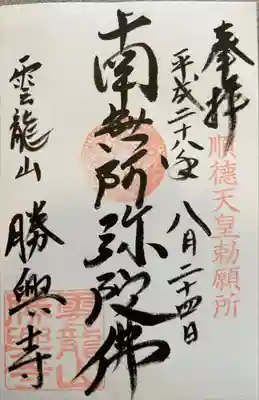 奉拝
順徳天皇勅願所
平成二十八年
八月二十四日
南無阿弥陀佛
雲龍山
勝興寺
雲龍山
勝興寺